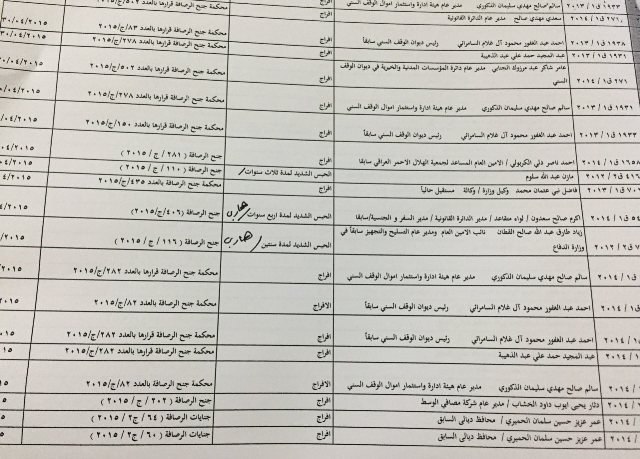 ١٩٣٣ ق١ / ٢٠١٣ سالم صالح مهدي سليمان الذكوري مدير عام هيئة ادارة واستثمار اموال الوقف السني افراج
٢٧١ ق١ / ٢٠١٤ سعدي مهدي صالح مدير عام الدائرة القانونية افراج محكمة جنح الرصافة قرارها بالعدد ٨٣/ج/٢٠١٥
١٩٣٨ ق١ / ٢٠١٣ احمد عبد الغفور محمود آل غلام السامرائي رئيس ديوان الوقف السني سابقاً افراج محكمة جنح الرصافة قرارها بالعدد ٢٧٨/ج/٢٠١٥ ٣٠/٠٤/٢٠١٥
١٩٣١ ق١ / ٢٠١٣ عبد المجيد حمد علي عبد الذهيبة افراج
٢٧١ ق١ / ٢٠١٤ عامر شاكر عبد مرزوك الجنابي مدير عام دائرة المؤسسات المدنية والخيرية في ديوان الوقف السني افراج محكمة جنح الرصافة قرارها بالعدد ٥٠٢/ج/٢٠١٥
١٩٣١ ق١ / ٢٠١٣ سالم صالح مهدي سليمان الذكوري مدير عام هيئة ادارة واستثمار اموال الوقف السني افراج محكمة جنح الرصافة قرارها بالعدد ٢٧٨/ج/٢٠١٥
١٩٣٣ ق١ / ٢٠١٣ احمد عبد الغفور محمود آل غلام السامرائي رئيس ديوان الوقف السني سابقاً افراج محكمة جنح الرصافة قرارها بالعدد ١٥٠/ج/٢٠١٥
١٦٥٨ ق١ / ٢٠١٤ احمد ناصر دلي الكربولي / الامين العام المساعد لجمعية الهلال الاحمر العراقي سابقا افراج جنح الرصافة ( ٢٨١ / ج / ٢٠١٥ )
ق٢ / ٢٠١٢ مازن عبد الله سلوم الحبس الشديد لمدة ثلاث سنوات/ جنح الرصافة ( ١١٠ / ج / ٢٠١٥ )
ق١ / ٢٠١٣ فاضل نبي عثمان محمد وكيل وزارة / وكالة مستقيل حالياً افراج محكمة جنح الرصافة قرارها بالعدد ٤٣٥/ج/٢٠١٥
ق١ / ٢٠١٤ اكرم صالح سعدون / لواء متقاعد / مدير الدائرة القانونية / مدير السفر و الجنسية/سابقا الحبس الشديد لمدة اربع سنوات/ هارب جنح الرصافة (٤٠٦/ج/٢٠١٥)
ق٢ / ٢٠١٢ زياد طارق عبد الله صالح القطان نائب الامين العام ومدير عام التسليح والتجهيز سابقاً في وزارة الدفاع الحبس الشديد لمدة سنتين/ هارب جنح الرصافة ( ١١٦ / ج / ٢٠١٥ )
ق١ / ٢٠١٤ سالم صالح مهدي سليمان الذكوري مدير عام هيئة ادارة واستثمار اموال الوقف السني افراج محكمة جنح الرصافة قرارها بالعدد ٢٨٢/ج/٢٠١٥
ق١ / ٢٠١٤ احمد عبد الغفور محمود آل غلام السامرائي رئيس ديوان الوقف السني سابقاً الافراج محكمة جنح الرصافة قرارها بالعدد ٨٢/ج/٢٠١٥
ق١ / ٢٠١٤ احمد عبد الغفور محمود آل غلام السامرائي رئيس ديوان الوقف السني سابقاً افراج محكمة جنح الرصافة قرارها بالعدد ٢٨٢/ج/٢٠١٥
ق١ / ٢٠١٤ عبد المجيد حمد علي عبد الذهيبة افراج محكمة جنح الرصافة قرارها بالعدد ٢٨٢/ج/٢٠١٥
/ ٢٠١٤ سالم صالح مهدي سليمان الذكوري مدير عام هيئة ادارة واستثمار اموال الوقف السني الافراج محكمة جنح الرصافة قرارها بالعدد ٨٢/ج/٢٠١٥
/ ٢٠١٤ دثار يحيى ايوب داود الخشاب / مدير عام شركة مصافي الوسط افراج جنح الرصافة ( ٢٠٢ / ج / ٢٠١٥ )
/ ٢٠١٤ عمر عزيز حسين سلمان الحميري / محافظ ديالى السابق افراج جنايات الرصافة ( ٦٤ / ج٢ / ٢٠١٥ )
عمر عزيز حسين سلمان الحميري / محافظ ديالى السابق افراج جنايات الرصافة ( ٦٠ / ج٢ / ٢٠١٥ )